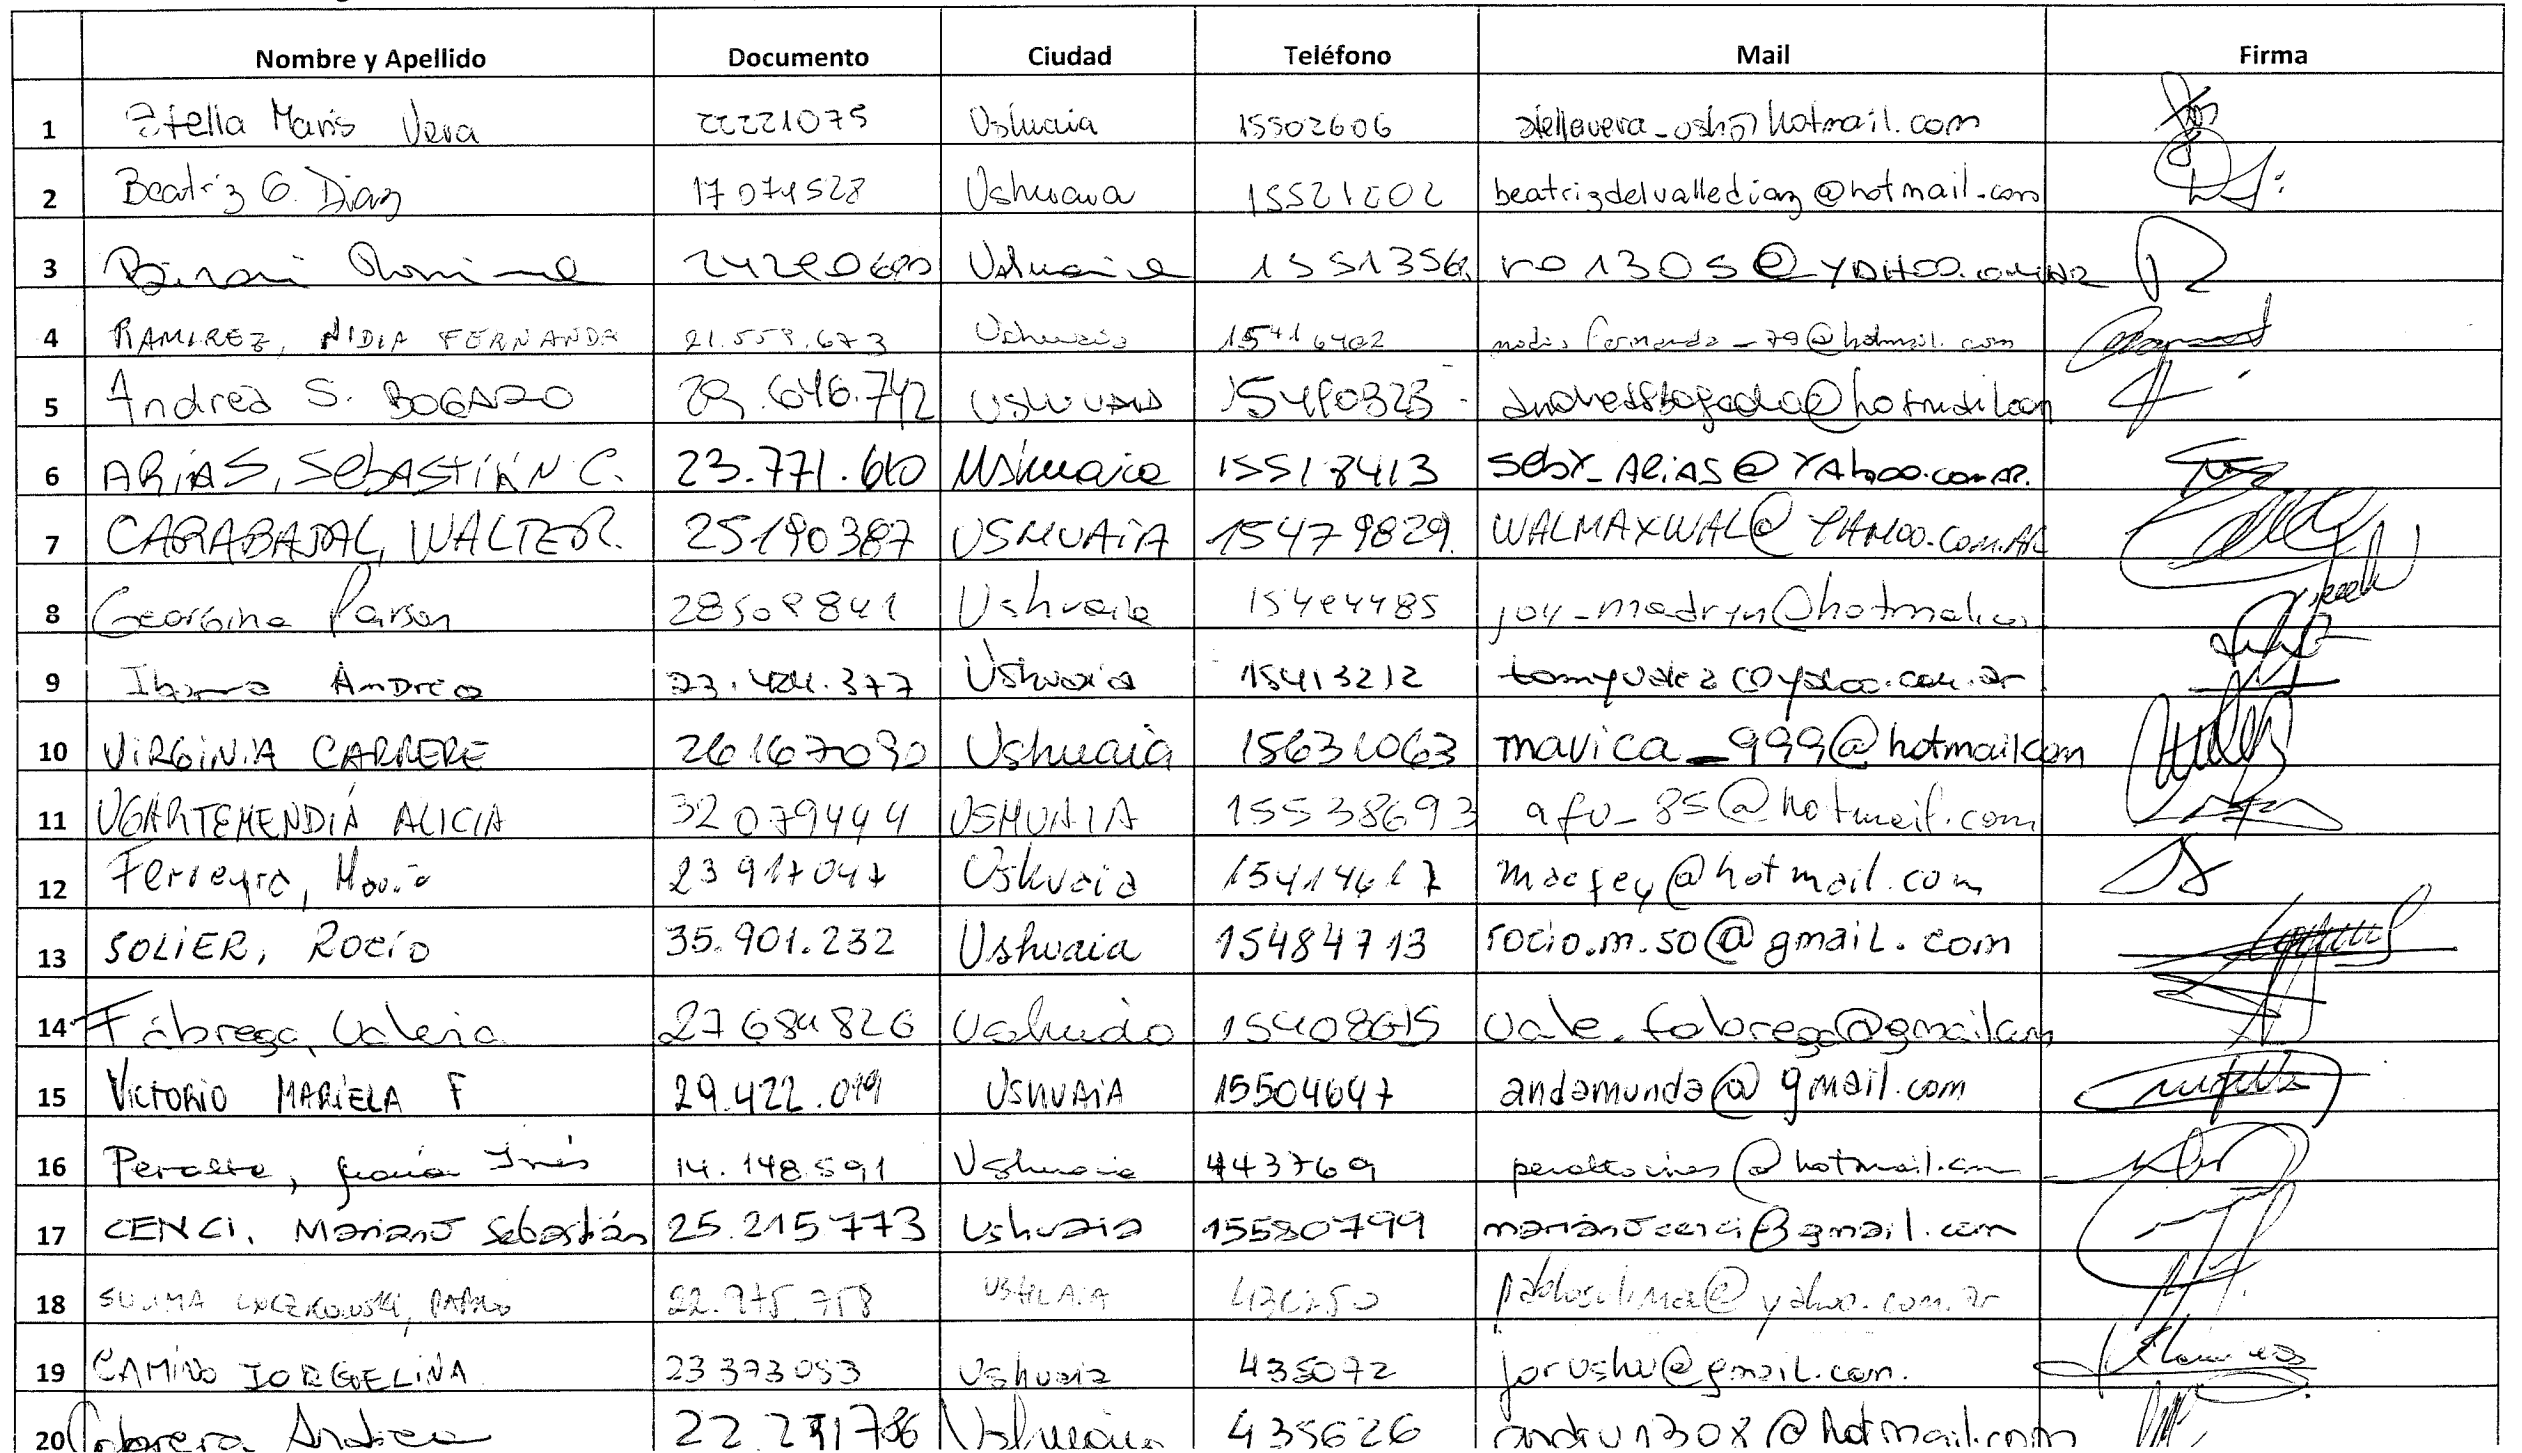 Nombre y Apellido Documento Ciudad Teléfono Mail Firma
1 Stella Maris Vera 22221075 Ushuaia 15502606 stellavera_ush@hotmail.com
2 Beatriz G. Diaz 17074528 Ushuaia 15521202 beatrizdelvallediaz@hotmail.com
3 Ushuaia ro1305@yahoo.com.ar
4 RAMIREZ, NIDIA FERNANDA Ushuaia 15416402
5 Andrea S. BOGADO 29.646.742 Ushuaia 15490323
6 ARIAS, SEBASTIÁN C. 23.771.610 Ushuaia 15518413 SEBY_ARIAS@YAhoo.com.AR.
7 CARABAJAL, WALTER. 25190387 USHUAIA 15479829 WALMAXWAL@YAHOO.COM.AR
8 Georgina Parson 28509841 Ushuaia joy_madryn@hotmail.com
9 Andrea Ushuaia 15413212
10 VIRGINIA CARRERE 26167090 Ushuaia 15631063 mavica_999@hotmail.com
11 UGARTEMENDIA ALICIA 32079444 USHUAIA 15538693 afu_85@hotmail.com
12 Ferreyra, María 23917047 Ushuaia 15414617 macfey@hotmail.com
13 SOLIER, ROCÍO 35.901.232 Ushuaia 15484713 rocio.m.so@gmail.com
14 Fábrega, Valeria 27684826 Ushuaia 15408615 vale.fabrega@gmail.com
15 VICTORIO MARIELA F 29.422.019 USHUAIA 15504647 andamunda@gmail.com
16 Peralta, María Inés 14.148.591 Ushuaia 443769 peraltaines@hotmail.com
17 CENCI, Mariano Sebastián 25.215773 Ushuaia 15580799 marianocenci@gmail.com
18 PABLO 22.975.758 USHUAIA @yahoo.com.ar
19 CAMINO JORGELINA 23373053 Ushuaia 435072 jorushu@gmail.com.
20 Cabrera Andrea Ushuaia 435626